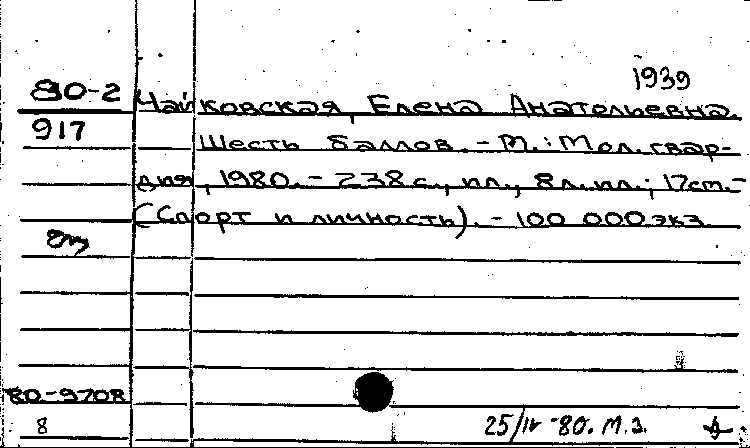 1939
80-2 Чайковская, Елена Анатольевна.
917 Шесть баллов. - М.: Мол. гвар-
дия, 1980. - 238 с., ил., 8 л. ил.; 17 см. -
(Спорт и личность). - 100 000 экз.
80-9708
8 25/IV -80. М.З.